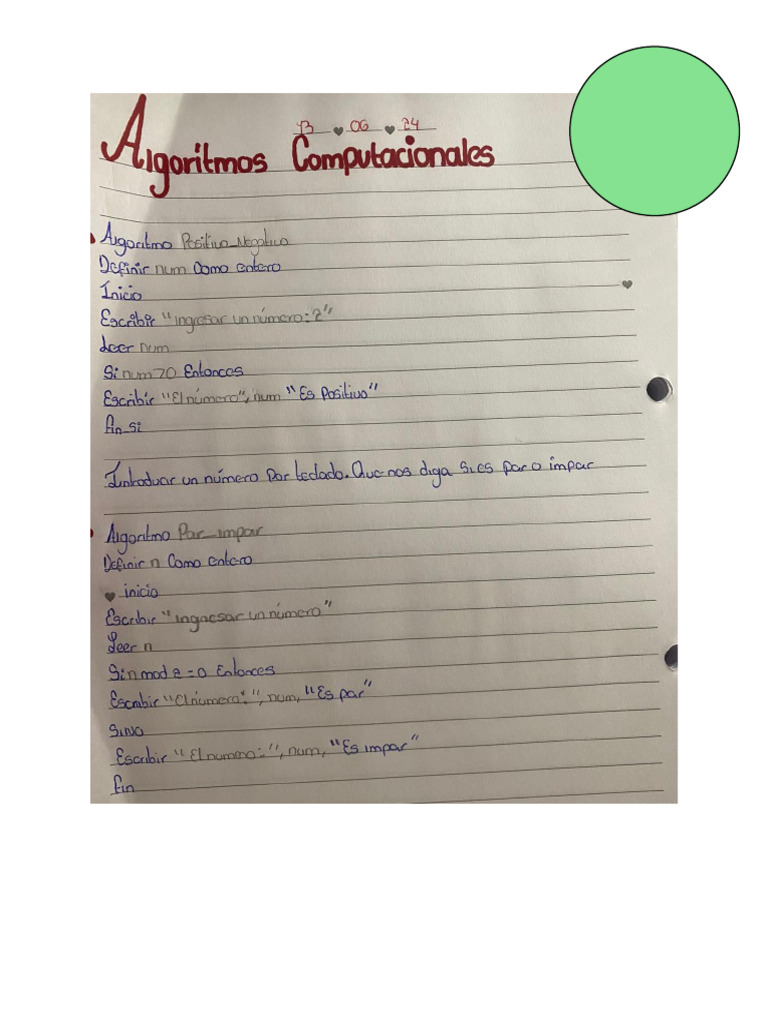 13 ♥ 06 ♥ 24
Algoritmos Computacionales
Algoritmo Positivo_Negativo
Definir num Como entero
Inicio
Escribir "ingresar un número: ?"
Leer num
Si num>0 Entonces
Escribir "El número", num "Es Positivo"
fin_si
Introducir un número por teclado. Que nos diga si es par o impar
Algoritmo Par_impar
Definir n Como entero
♥ inicio
Escribir "ingresar un número"
Leer n
Si n mod 2 = 0 Entonces
Escribir "El número:", num, "Es par"
SiNo
Escribir "El numero:", num, "Es impar"
fin